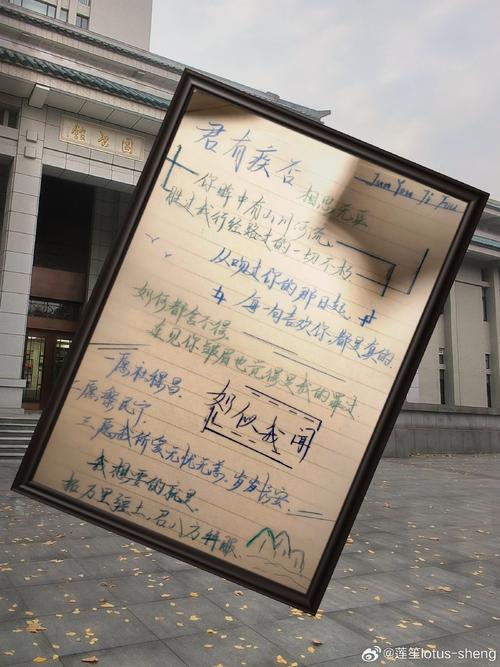 圖書館
君有疾否 相思无医 Jun You Ji Fou
你眸中有山川河流
胜过我行经路过的一切不朽
从吻过你的那日起
每一句喜欢你,都是真的.
如何都舍不得
见你皱眉也觉得是我的罪过
一愿社稷昌
二愿黎民宁
三愿我所爱无忧无恙,岁岁长安
如似我闻
我想要的就是
万里疆土,君八方拜服
@莲笙lotus-sheng